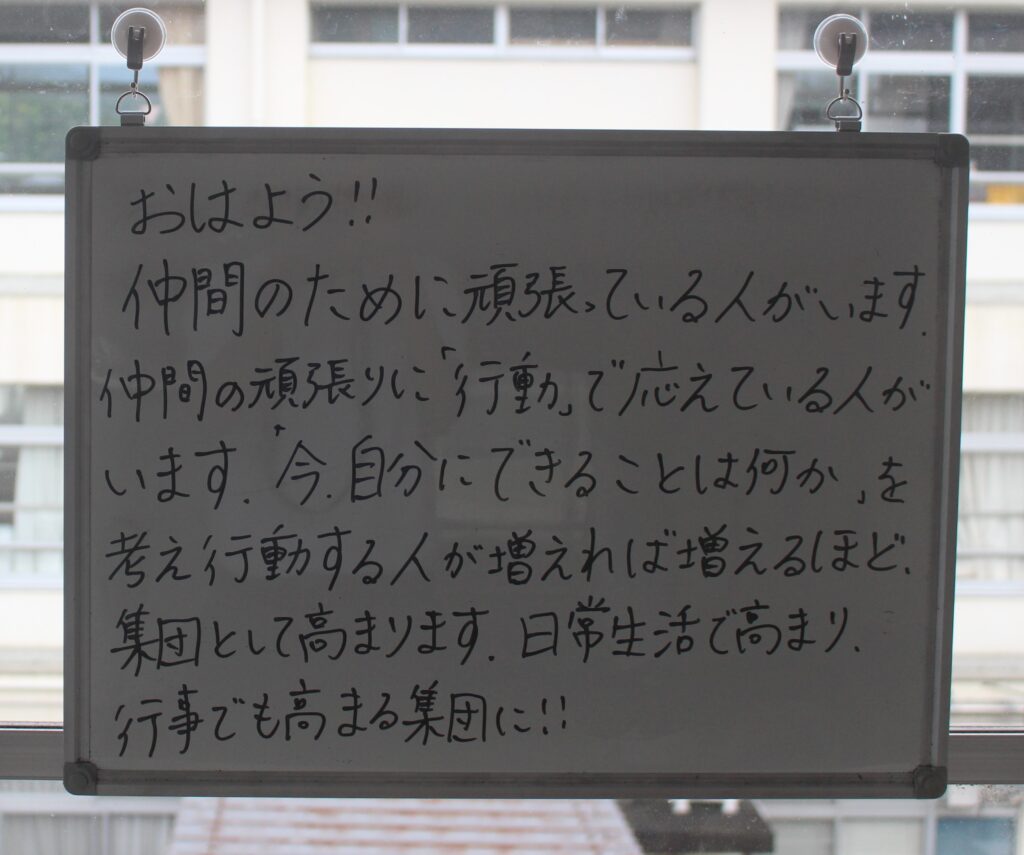 おはよう!!
仲間のために頑張っている人がいます.
仲間の頑張りに「行動」で応えている人が
います.「今.自分にできることは何か」を
考え行動する人が増えれば増えるほど、
集団として高まります.日常生活で高まり、
行事でも高まる集団に!!